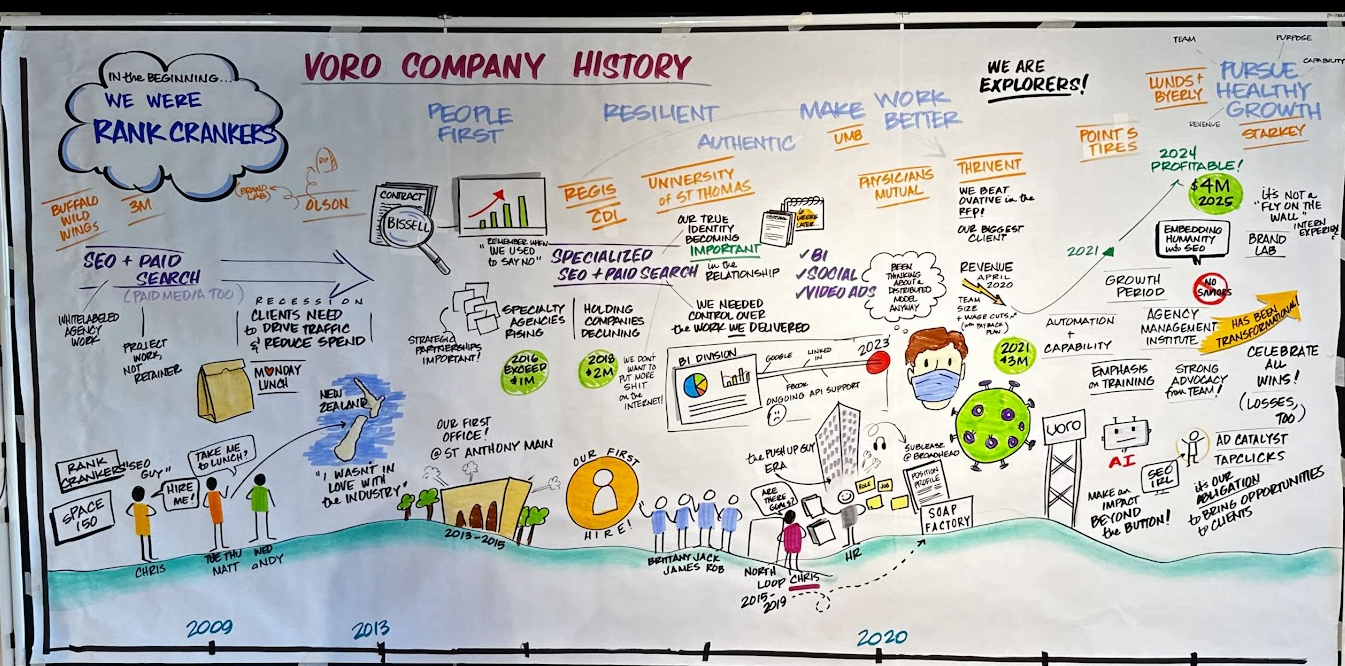 VORO COMPANY HISTORY
IN the BEGINNING...
WE WERE
RANK CRANKERS
PEOPLE
FIRST
RESILIENT
AUTHENTIC
MAKE WORK
BETTER
WE ARE
EXPLORERS!
TEAM
PURPOSE
CAPABILITY
REVENUE
PURSUE
HEALTHY
GROWTH
LUNDS +
BYERLY
STARKEY
POINT S
TIRES
UMB
THRIVENT
PHYSICIANS
MUTUAL
UNIVERSITY
of ST THOMAS
REGIS
CDI
OLSON
BRAND
LAB
3M
BUFFALO
WILD
WINGS
SEO + PAID
SEARCH
(PAID MEDIA TOO)
WHITELABELED
AGENCY
WORK
PROJECT
WORK,
NOT
RETAINER
RECESSION
CLIENTS NEED
to DRIVE TRAFFIC
& REDUCE SPEND
MONDAY
LUNCH
CONTRACT
BISSELL
"REMEMBER WHEN
WE USED
to SAY NO"
SPECIALIZED
SEO + PAID SEARCH
OUR TRUE
IDENTITY
BECOMING
IMPORTANT
in the
RELATIONSHIP
6
WEEKS
LATER
✓BI
✓SOCIAL
✓VIDEO ADS
STRATEGIC
PARTNERSHIPS
IMPORTANT!
SPECIALTY
AGENCIES
RISING
HOLDING
COMPANIES
DECLINING
2016
EXCEED
$1M
2018
$2M
WE DON'T
WANT TO
PUT MORE
SHIT
on the
INTERNET!
WE NEEDED
CONTROL OVER
the WORK WE DELIVERED
BI DIVISION
GOOGLE
LINKED
IN
FBOOK
ONGOING API SUPPORT
2023
BEEN
THINKING
ABOUT A
DISTRIBUTED
MODEL
ANYWAY
WE BEAT
OVATIVE in the
RFP!
OUR BIGGEST
CLIENT
REVENUE
APRIL
2020
TEAM
SIZE
+ WAGE CUTS
(with PAY BACK)
PLAN
2021
$3M
2021
2024
PROFITABLE!
$4M
2025
EMBEDDING
HUMANITY
into SEO
it's NOT a
"FLY ON THE
WALL"
INTERN
BRAND
LAB
GROWTH
PERIOD
NO
SAVIORS
AUTOMATION
+
CAPABILITY
AGENCY
MANAGEMENT
INSTITUTE
HAS BEEN
TRANSFORMATIONAL
EMPHASIS
on TRAINING
STRONG
ADVOCACY
from TEAM!
CELEBRATE
ALL
WINS!
(LOSSES,
TOO)
NEW
ZEALAND
"I WASN'T IN
LOVE WITH
the INDUSTRY"
OUR FIRST
OFFICE!
@ ST ANTHONY MAIN
2013-2015
OUR FIRST
HIRE!
BRITTANY JACK
JAMES ROB
the PUSH UP GUY
ERA
ARE
THERE
GOALS?
NORTH
LOOP
2015-
2019
CHRIS
HR
ROLE
JOB
SUBLEASE
@ BROADHEAD
POSITION
PROFILE
SOAP
FACTORY
voro
AI
SEO
IRL
MAKE an
IMPACT
BEYOND
the BUTTON!
AD CATALYST
TAPCLICKS
it's OUR
OBLIGATION
to BRING OPPORTUNITIES
to CLIENTS
RANK
CRANKERS
SPACE
150
"SEO
GUY"
HIRE
ME!
TAKE ME
to LUNCH?
CHRIS
TUE THU
MATT
WED
aNDY
2009
2013
2020